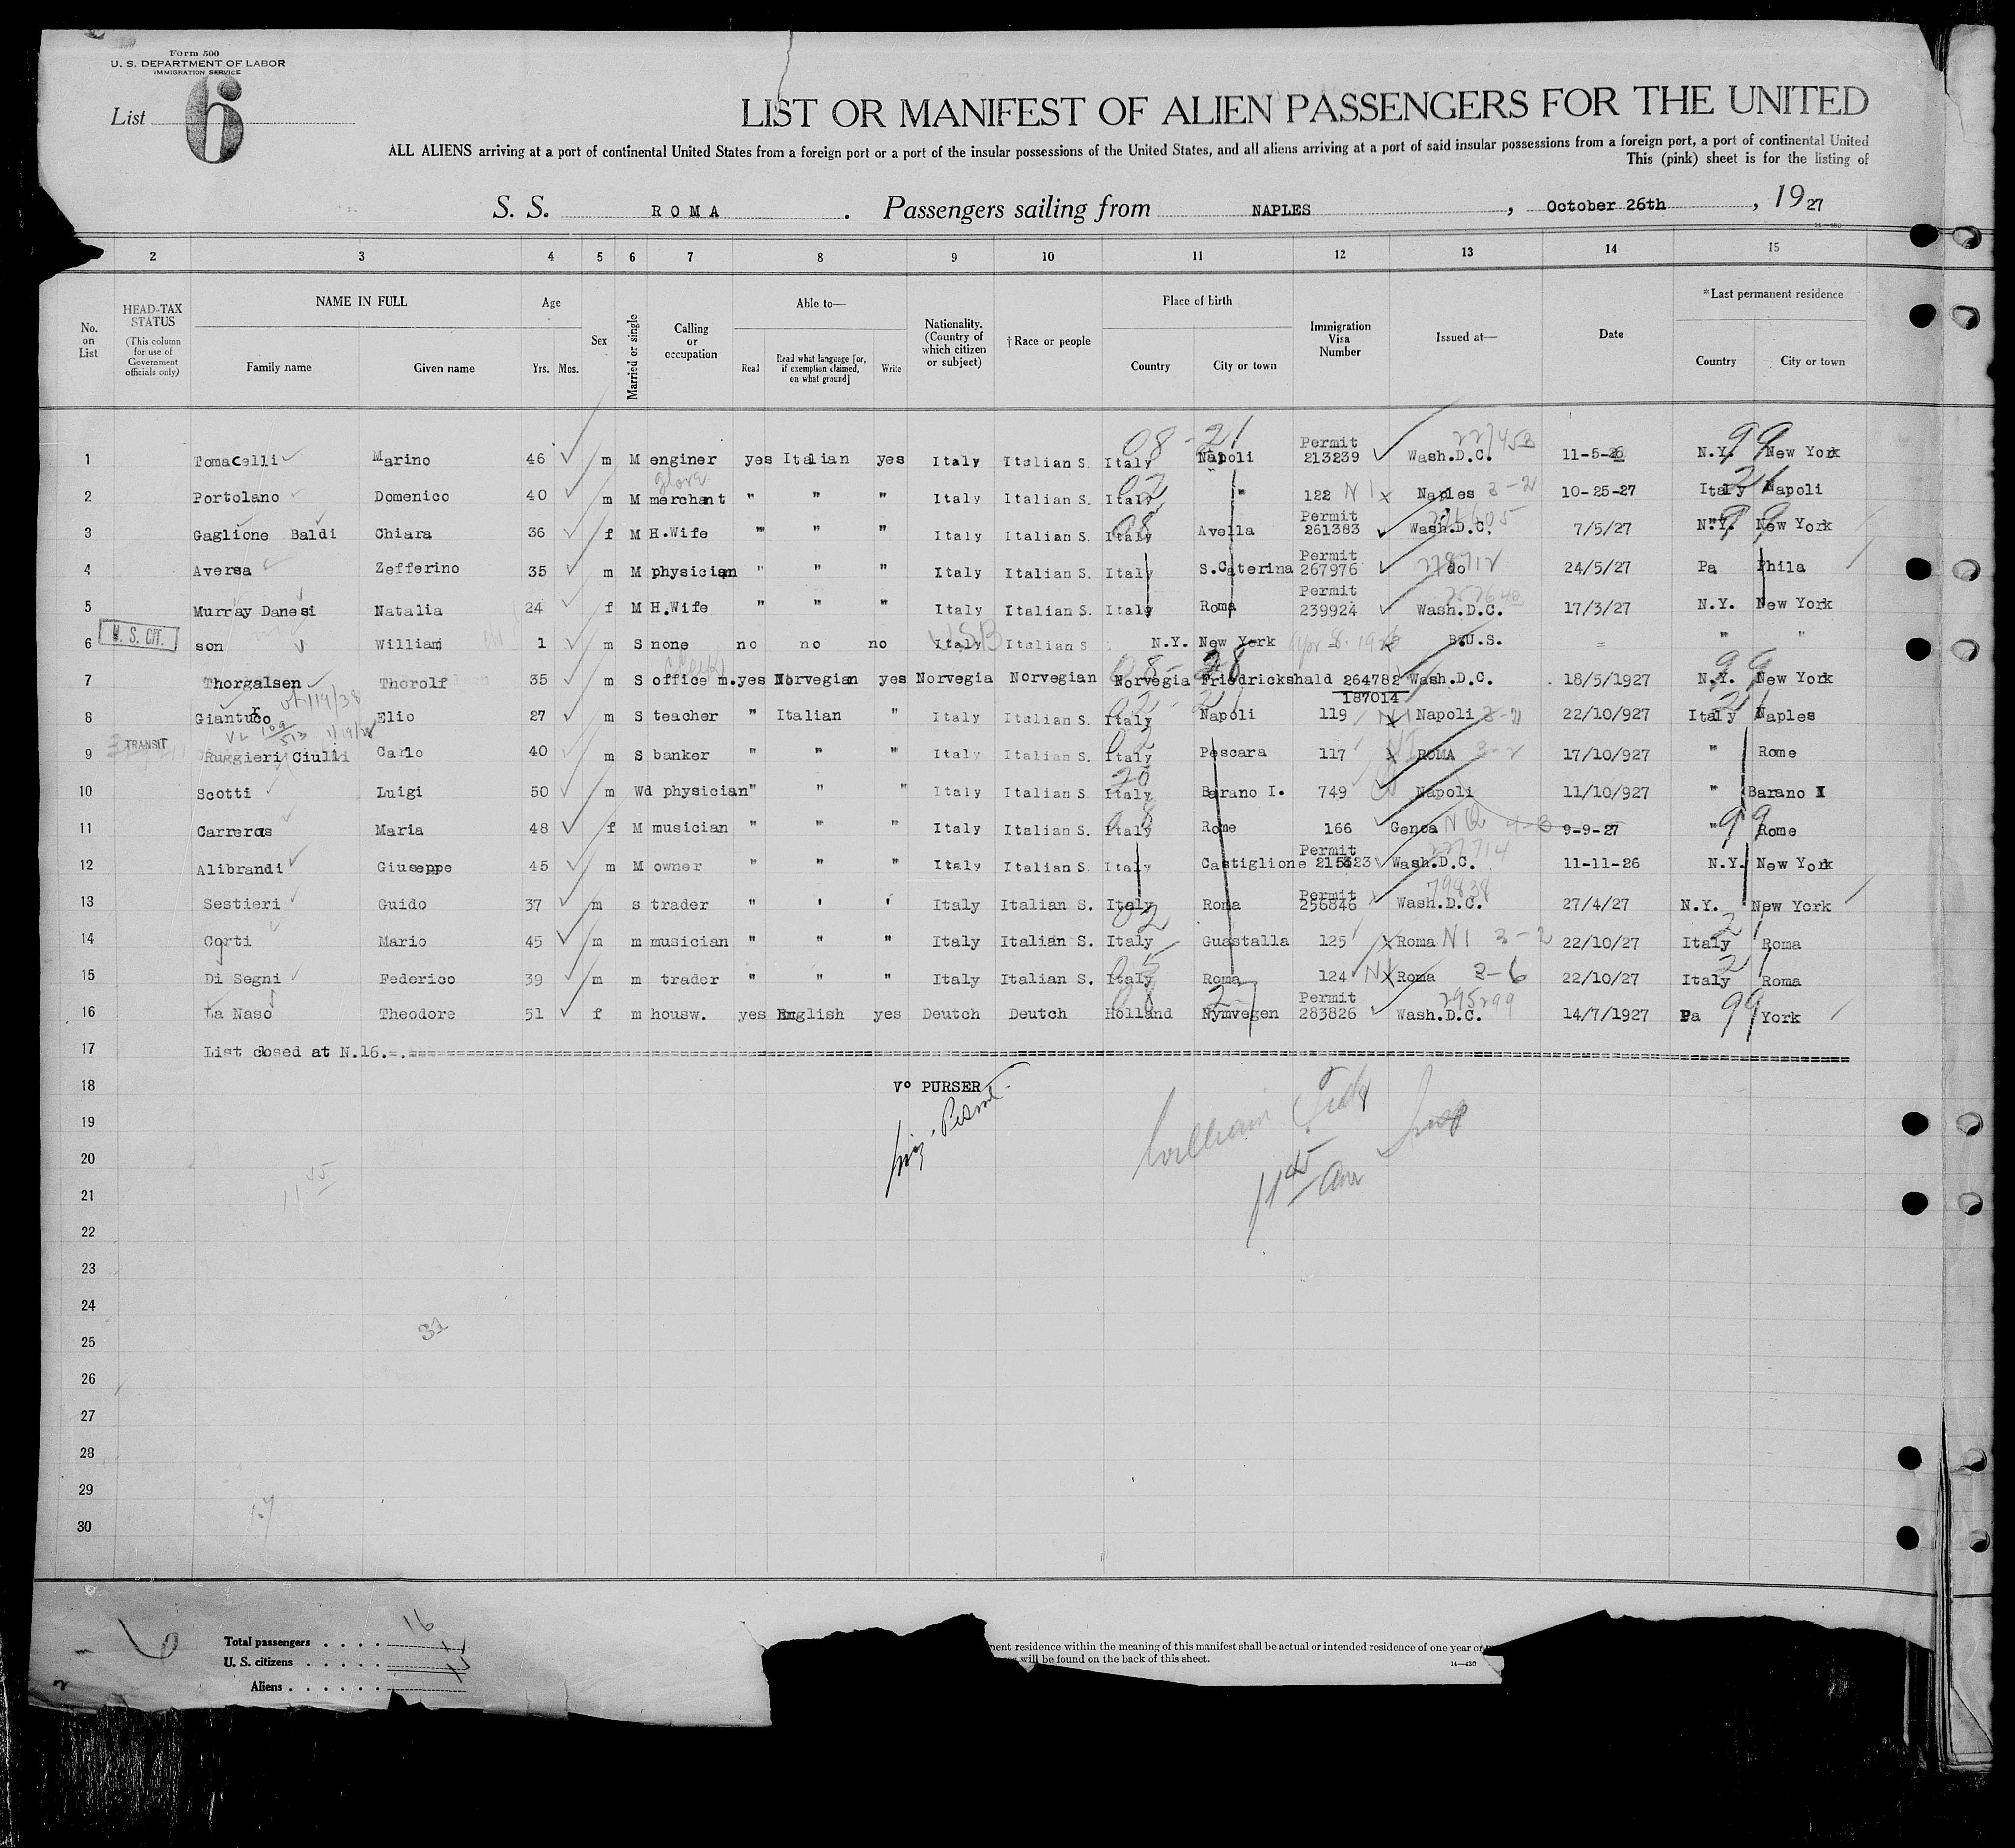 Form 500
U. S. DEPARTMENT OF LABOR
IMMIGRATION SERVICE
List 6
LIST OR MANIFEST OF ALIEN PASSENGERS FOR THE UNITED
ALL ALIENS arriving at a port of continental United States from a foreign port or a port of the insular possessions of the United States, and all aliens arriving at a port of said insular possessions from a foreign port, a port of continental United
This (pink) sheet is for the listing of
S. S. ROMA . Passengers sailing from NAPLES , October 26th , 1927
2 3 4 5 6 7 8 9 10 11 12 13 14 15
No. on List
HEAD-TAX STATUS (This column for use of Government officials only)
NAME IN FULL
Family name Given name
Age
Yrs. Mos.
Sex
Married or single
Calling or occupation
Able to—
Read Read what language [or, if exemption claimed, on what ground] Write
Nationality. (Country of which citizen or subject)
†Race or people
Place of birth
Country City or town
Immigration Visa Number
Issued at—
Date
*Last permanent residence
Country City or town
08-21 Permit
1 Tomacelli Marino 46 m M enginer yes Italian yes Italy Italian S. Italy Napoli 213239 Wash.D.C. 11-5-26 N.Y. 99 New York
2 Portolano Domenico 40 m M merchant " " " Italy Italian S. Italy " 122 N I x Naples 3-2 10-25-27 Italy 21 Napoli
Permit
3 Gaglione Baldi Chiara 36 f M H.Wife " " " Italy Italian S. Italy Avella 261383 Wash.D.C. 7/5/27 N.Y. 99 New York
Permit
4 Aversa Zefferino 35 m M physician " " " Italy Italian S. Italy S.Caterina 267976 do 24/5/27 Pa Phila
Permit
5 Murray Danesi Natalia 24 f M H.Wife " " " Italy Italian S. Italy Roma 239924 Wash.D.C. 17/3/27 N.Y. New York
U. S. CIT.
6 son William 1 m S none no no no Italy Italian S N.Y. New York B.U.S. = " "
7 Thorgalsen Thorolf 35 m S office m. yes Norvegian yes Norvegia Norvegian Norvegia Friedrickshald 264782 Wash.D.C. 18/5/1927 N.Y. 99 New York
187014
8 Giantuco Elio 27 m S teacher " Italian " Italy Italian S. Italy Napoli 119 Napoli 3-2 22/10/927 Italy 21 Naples
TRANSIT
9 Ruggieri Ciulli Carlo 40 m S banker " " " Italy Italian S. Italy Pescara 117 x ROMA 3-2 17/10/927 " Rome
10 Scotti Luigi 50 m Wd physician " " " Italy Italian S. Italy Barano I. 749 Napoli 11/10/927 " Barano I
11 Carreras Maria 48 f M musician " " " Italy Italian S. Italy Rome 166 Genoa 9-9-27 " 99 Rome
Permit
12 Alibrandi Giuseppe 45 m M owner " " " Italy Italian S. Italy Castiglione 215423 Wash.D.C. 11-11-26 N.Y. New York
Permit 79838
13 Sestieri Guido 37 m s trader " ' ' Italy Italian S. Italy Roma 256846 Wash.D.C. 27/4/27 N.Y. New York
14 Corti Mario 45 m m musician " " " Italy Italian S. Italy Guastalla 125 x Roma N I 3-2 22/10/27 Italy 21 Roma
15 Di Segni Federico 39 m m trader " " " Italy Italian S. Italy Roma 124 x Roma 3-6 22/10/27 Italy 21 Roma
Permit 295299
16 La Naso Theodore 51 f m housw. yes English yes Deutch Deutch Holland Nymvegen 283826 Wash.D.C. 14/7/1927 Pa 99 York
17 List closed at N.16.-.
18 V° PURSER
19
20
21
22
23
24
25
26
27
28
29
30
31
6
Total passengers . . . . 16
U. S. citizens . . . . .
Aliens . . . . . .
residence within the meaning of this manifest shall be actual or intended residence of one year or
will be found on the back of this sheet.
14—430